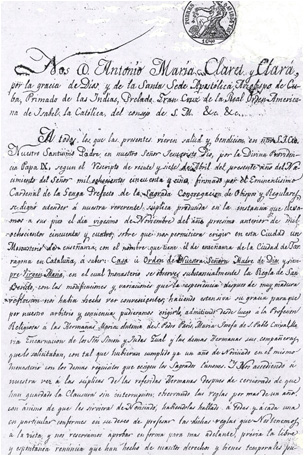 Nos D. Antonio Maria Claret y Clará,
por la gracia de Dios y de la Santa Sede Apostólica, Arzobispo de Cu-
ba, Primado de las Indias, Prelado Gran Cruz de la Real Orden America-
na de Isabel la Católica, del consejo de S. M. &c. &c.
A todos los que las presentes vieren salud y bendicion en
Nuestro Santisimo Padre en nuestro Señor Jesucristo Pio, por la Divina Providen-
cia Papa IX, segun el Decreto de veinte y siete de Abril del presente año del Na-
cimiento del Señor mil ochocientos cincuenta y cinco, firmado por el Eminentisimo
Cardenal de la Genga Prefecto de la Sagrada Congregacion de Obispos y Regulares,
se dignó atender á nuestra reverente súplica producida en la instancia que eleva-
mos á sus pies el dia vigesimo de Noviembre del año procsimo anterior de mil
ochocientos cincuenta y cuatro, sobre que nos permitiera erigir en esta Ciudad un
Monasterio de enseñanza, con el nombre que tiene el de enseñanza de la Ciudad de Tar-
ragona en Cataluña, á saber: Casa ú Orden de Nuestra Señora Madre de Dios y siem-
pre Virgen Maria, en el cual monasterio se observe substancialmente la Regla de San
Benito, con las modificaciones y que la esperiencia despues de muy madura
reflecsion nos habia hecho ver convenientes; habiendo estensiva su gracia para que
por nuestro arbitrio y pudieramos erigirle, admitiendo desde luego á la Profesion
Religiosa á las Hermanas Maria Antonia de San Pedro Paris, Maria Josefa de San Pablo
ria Encarnacion de los Stos Simon y Judas Gual y las demas Hermanas sus compañeras,
cuales solicitaban, con tal que hubieran cumplido ya un año de Noviciado en el mismo
monasterio con los demas requisitos que ecsigen los Sagrados Canones. Y Nos accediendo á
nuestra vez á las súplicas de las referidas Hermanas despues de cerciorado de que
han guardado la Clausura sin interrupcion, observando las reglas por mas de un año,
con animo de que les sirviera de Noviciado, habiendolas hallado á todas y á cada una
en particular conformes en su deseo de profesar las dichas reglas que Nos tenemos
á la vista, y nos reservamos aprobar en forma para mas adelante, previa la libre y
espontanea renuncia que han hecho de cuantos derechos y bienes temporales